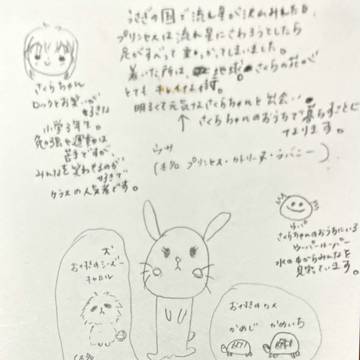 うさぎの国で流れ星が決めれた日
プリンセスは流れ星にさわろうとしたら
足がすべって重っかってしまいました。
着いた所は、地球 さくらの花が
とてもキレイな街。
明るくて元気なさくらちゃんと出会い
さくらちゃんのおうちで暮らすことに
なります。
さくらちゃん
ロックとお笑いが
好きな
小学3年生。
勉強と運動は
苦手ですが、
みんなを笑わせるのが
好きで
クラスの人気者です。
ウサ
(本名 プリンセス・カトリーヌ・ラバニー)
さくらちゃんのおうちにいる
ウーパールーパー
水の中からみんなを
見ています。
ズ
おさわぎのシーズー
キャロル
(本名
おさわぎのカメ
かめじ かめいち